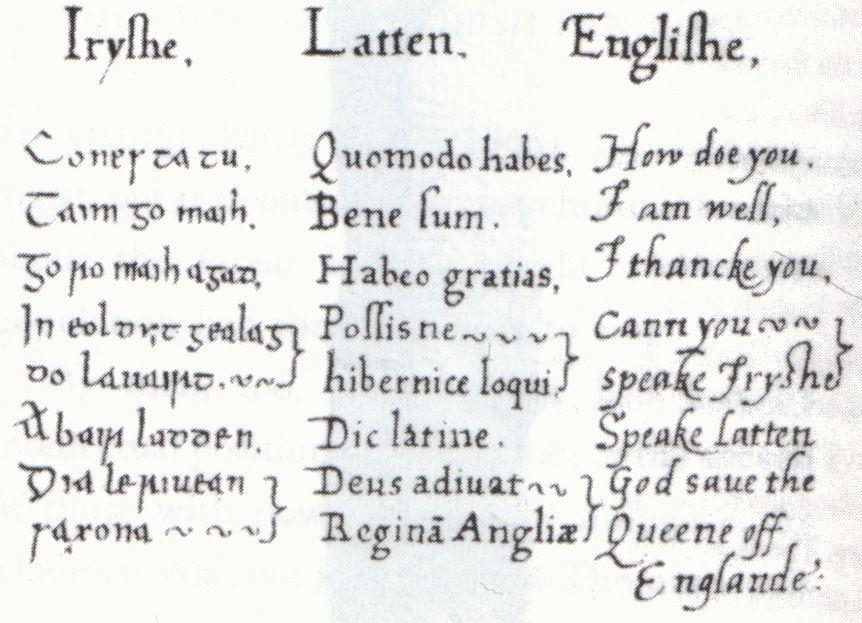 Iryshe, Latten. Englishe,
Cones ta tu. Quomodo habes, How doe you.
Taim go maih. Bene sum. I am well,
Go ro maih agad, Habeo gratias, I thancke you,
In Possis ne Cann you
do hibernice loqui, speake Iryshe
Abair ladden. Dic latine. Speake Latten
Dia le Deus adiuat God saue the
saxona Reginā Angliæ Queene off
Englande